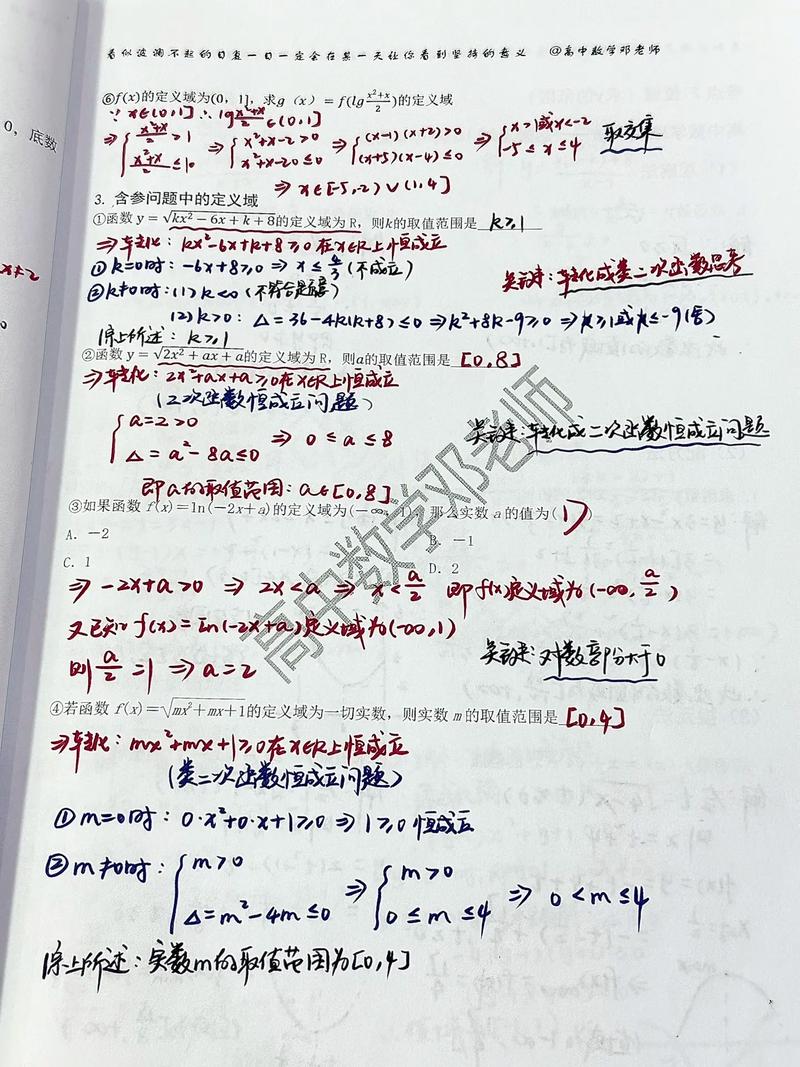 看似波澜不起的日复一日一定会在某一天让你看到坚持的意义 @高中数学邓老师
0，底数
⑥f(x)的定义域为(0, 1]，求g（x）= f(lg (x²+x)/2)的定义域
∵ x∈(0,1] ∴ lg (x²+x)/2 ∈(0,1]
⇒ { (x²+x)/2 > 1 ⇒ { x²+x-2>0 ⇒ { (x-1)(x+2)>0 ⇒ { x>1或x<-2 取交集
(x²+x)/2 ≤10 x²+x-20≤0 (x+5)(x-4)≤0 -5≤x≤4
⇒ x∈[-5,-2)∪(1,4]
3. 含参问题中的定义域
①函数 y = √(kx² − 6x + k + 8)的定义域为 R，则k的取值范围是 k≥1
⇒转化: kx²-6x+k+8≥0在x∈R上恒成立
x≠2
①k=0时: -6x+8≥0 ⇒ x≤4/3 (不成立) 关键: 转化成类二次函数思考
②k≠0时: (1) k<0 (不符合题意)
(2) k>0: Δ=36-4k(k+8)≤0 ⇒k²+8k-9≥0 ⇒ k≥1或k≤-9(舍)
综上所述: k≥1
②函数 y = √(2x² + ax + a)的定义域为 R，则a的取值范围是 [0,8]
⇒转化: 2x²+ax+a≥0在x∈R上恒成立
(二次函数恒成立问题)
{ a=2>0 ⇒ 0≤a≤8 关键: 转化成二次函数恒成立问题
Δ=a²-8a≤0
即a的取值范围: a∈[0,8]
③如果函数 f(x)=ln(−2x+a)的定义域为(−∞, 1)，那么实数 a 的值为( D )
A. −2 B. −1
C. 1 D. 2
⇒ -2x+a>0 ⇒ 2x<a ⇒ x<a/2 即f(x)定义域为(-∞, a/2)
又已知 f(x)=ln(-2x+a)定义域为(-∞,1)
则 a/2=1 ⇒ a=2 关键: 对数部分大于0
④若函数 f(x)=√(mx²+mx+1)的定义域为一切实数，则实数 m 的取值范围是 [0,4]
⇒转化: mx²+mx+1≥0在x∈R上恒成立
(类二次函数恒成立问题)
①m=0时: 0·x²+0·x+1≥0 ⇒ 1≥0 恒成立
②m≠0时: { m>0 ⇒ { m>0 ⇒ 0<m≤4
Δ=m²-4m≤0 0≤m≤4
综上所述: 实数m的取值范围为[0,4]
高中数学邓老师